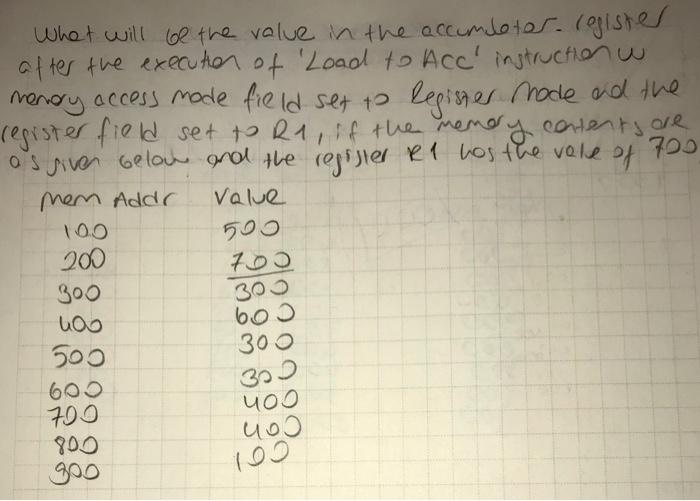 What will be the value in the accumlator. register
after the execution of 'Load to Acc' instruction w
memory access mode field set to Register Mode and the
register field set to R1, if the memory contents are
as given below and the register R1 has the value of 700
Mem Addr Value
100 500
200 700
300 300
400 600
500 300
600 300
700 400
800 400
900 100